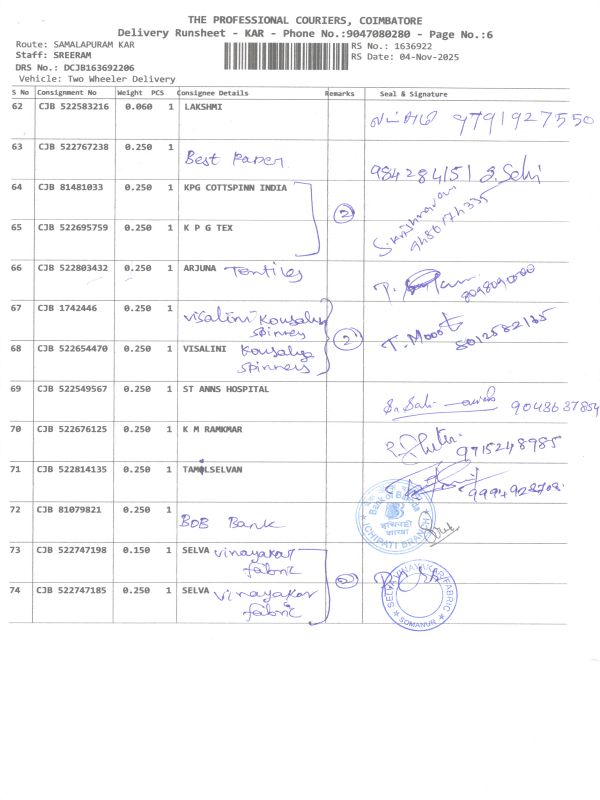 THE PROFESSIONAL COURIERS, COIMBATORE
Delivery Runsheet - KAR - Phone No.:9047080280 - Page No.:6
Route: SAMALAPURAM KAR
RS No.: 1636922
Staff: SREERAM
RS Date: 04-Nov-2025
DRS No.: DCJB163692206
Vehicle: Two Wheeler Delivery
S No Consignment No Weight PCS Consignee Details Remarks Seal & Signature
62 CJB 522583216 0.060 1 LAKSHMI 9791927550
63 CJB 522767238 0.250 1 Best Paper
64 CJB 81481033 0.250 1 KPG COTTSPINN INDIA 2
65 CJB 522695759 0.250 1 K P G TEX
66 CJB 522803432 0.250 1 ARJUNA
67 CJB 1742446 0.250 1 Visalini Kousalya
spinners 2
68 CJB 522654470 0.250 1 VISALINI Kousalya
spinners
69 CJB 522549567 0.250 1 ST ANNS HOSPITAL 9048637854
70 CJB 522676125 0.250 1 K M RAMKMAR 9715248985
71 CJB 522814135 0.250 1 TAMILSELVAN
72 CJB 81079821 0.250 1 BOB Bank
73 CJB 522747198 0.150 1 SELVA vinayakar
fabric 2
74 CJB 522747185 0.250 1 SELVA vinayakar
fabric
SELVA VINAYAKAR FABRIC
SOMANUR